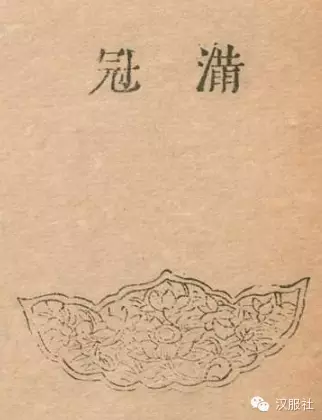 满冠
汉服社